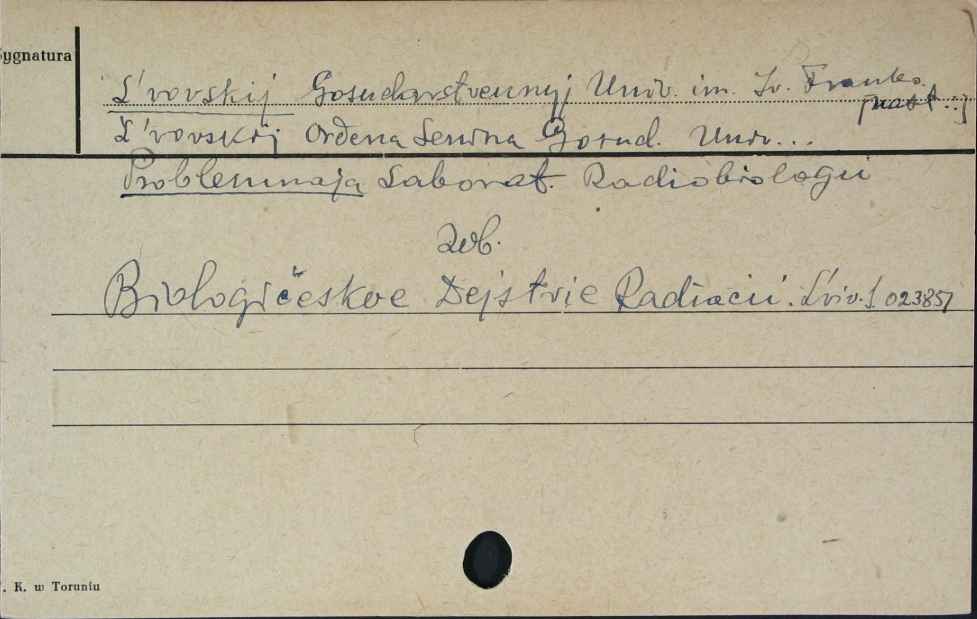 Sygnatura
L'vovskij Gosudarstvennyj Univ. im. Iv. Franko.
[nast...]
L'vovskij Ordena Lenina Gosud. Univ...
Problemnaja Laborat. Radiobiologii
zob.
Biologičeskoe Dejstvie Radiacii. L'viv. S 023857
. K. w Toruniu